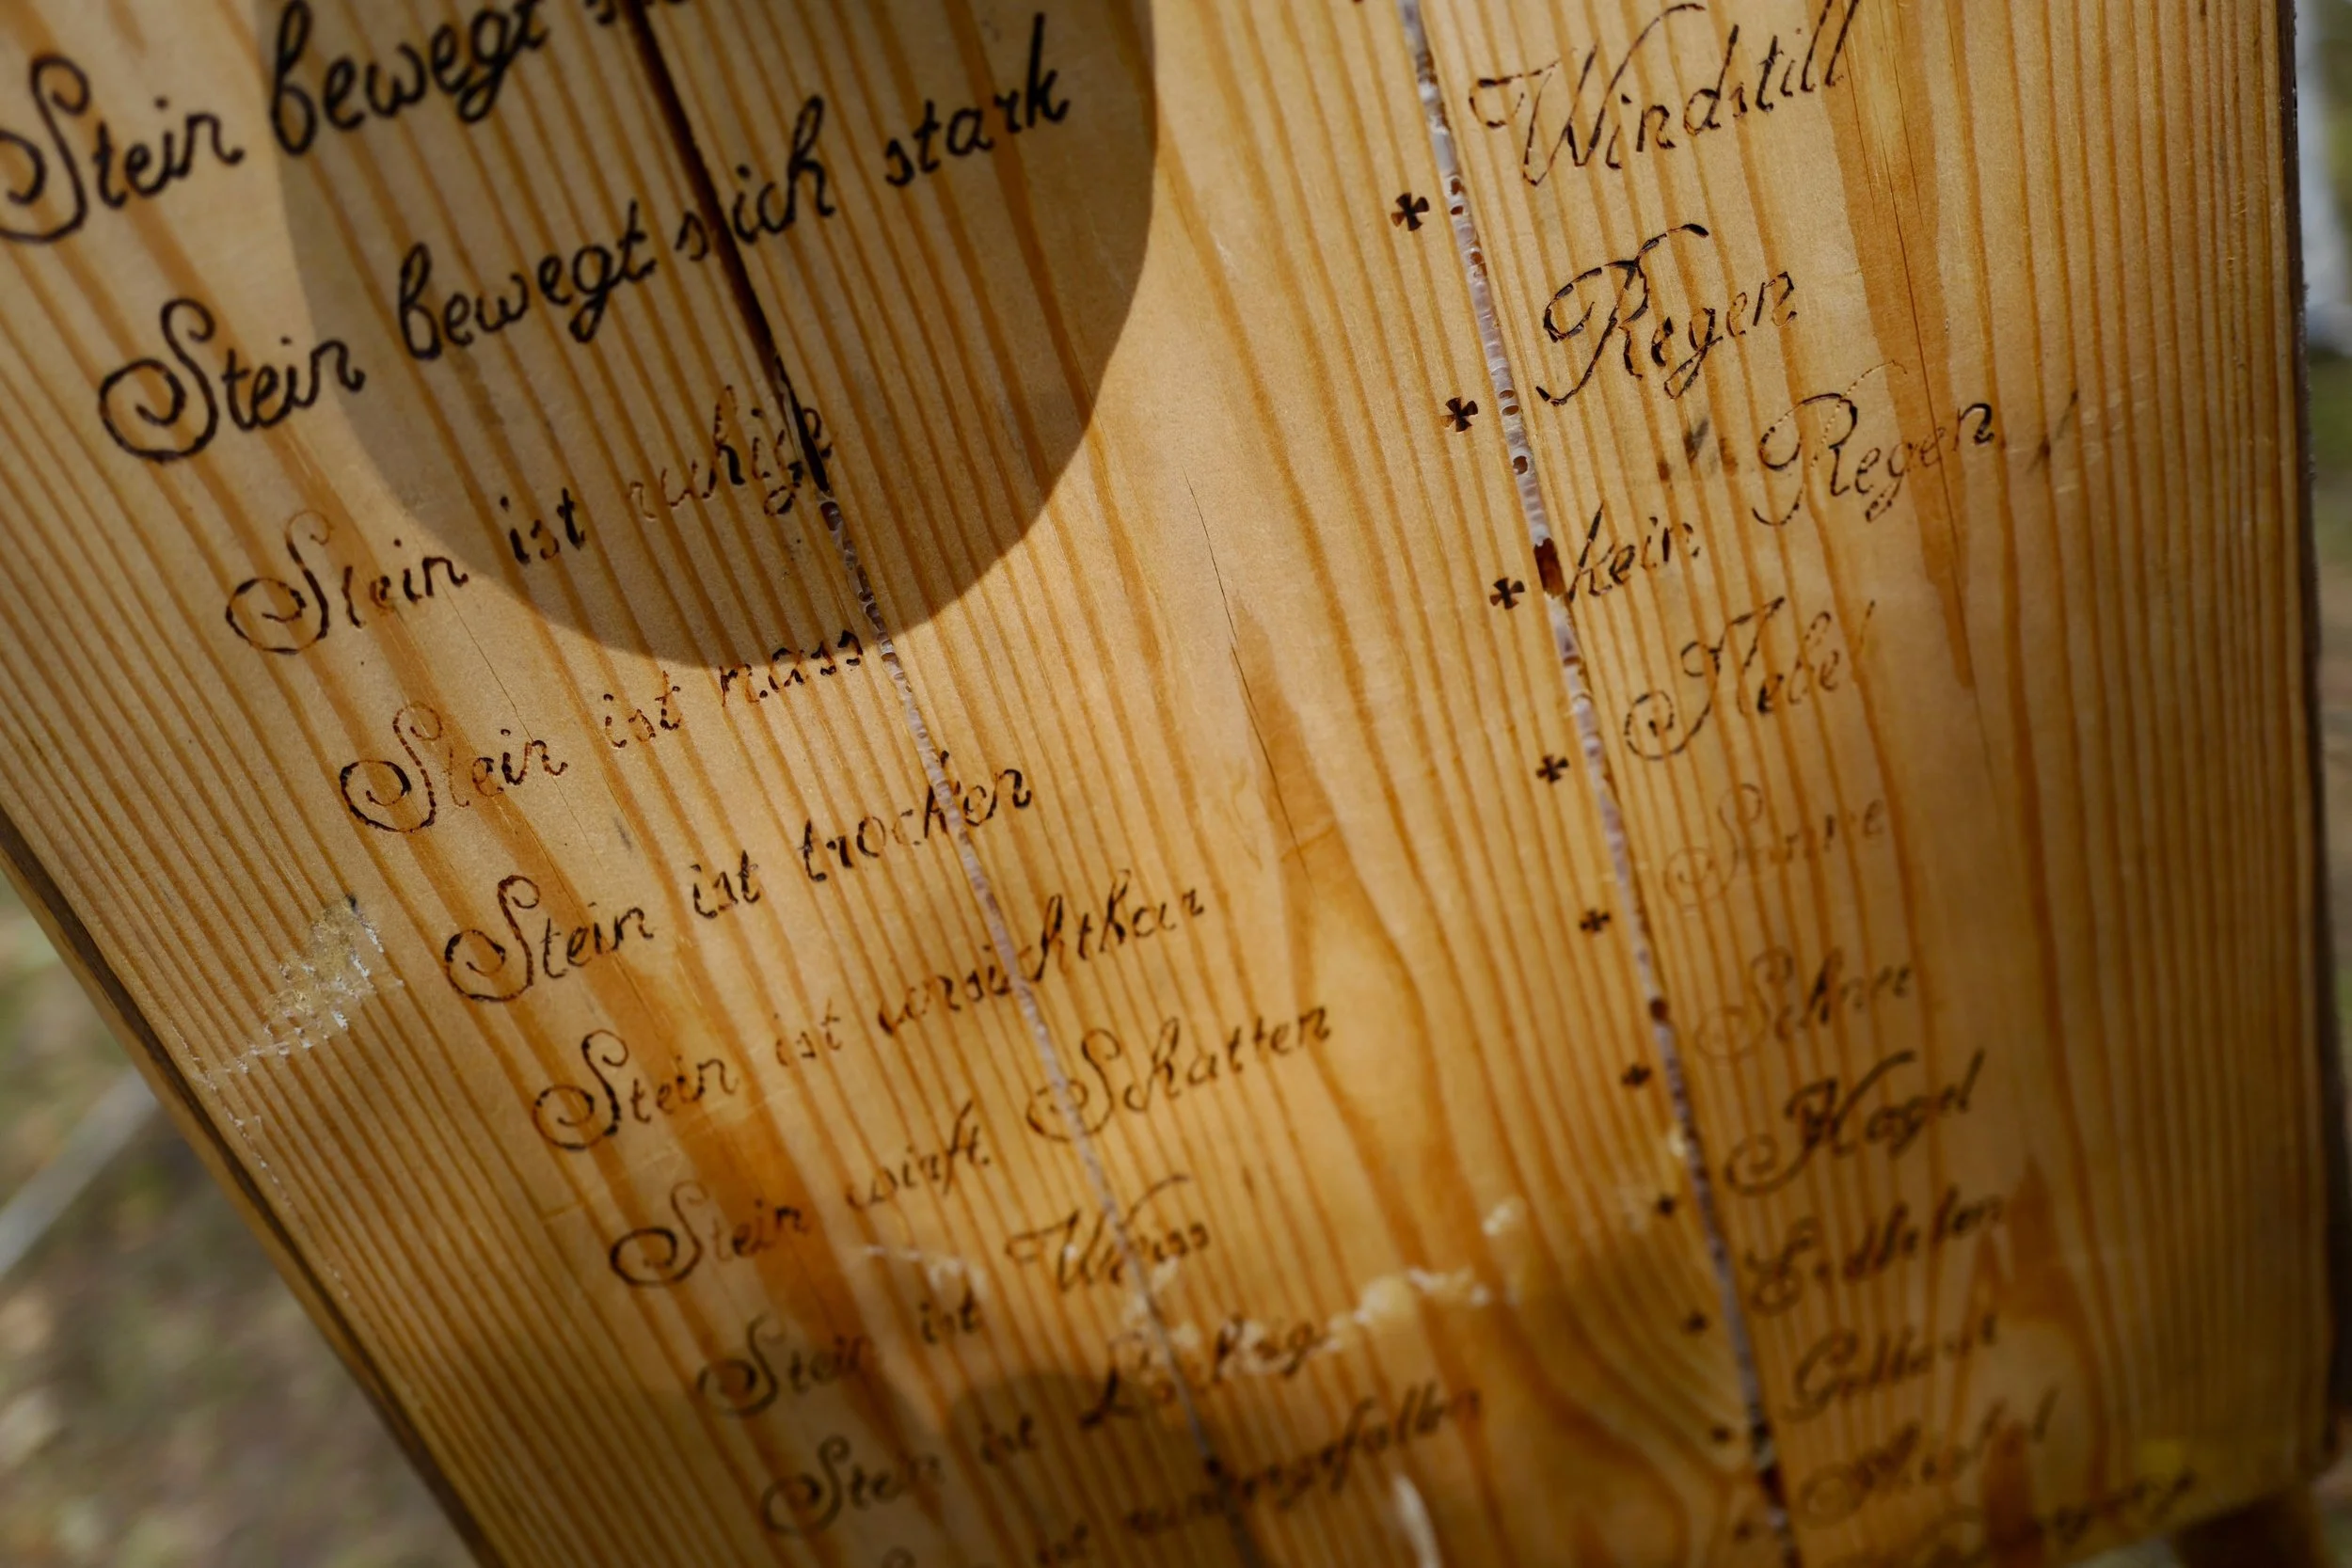 Stein bewegt
Stein bewegt sich stark
Stein ist ruhig
Stein ist nass
Stein ist trocken
Stein ist unsichtbar
Stein wirft Schatten
Stein ist Weiss
Stein ist Löchrig
ist runtergefallen
Windstill
Regen
kein Regen
Nebel
Sonne
Schnee
Hagel
Erdbeben
Geklaut